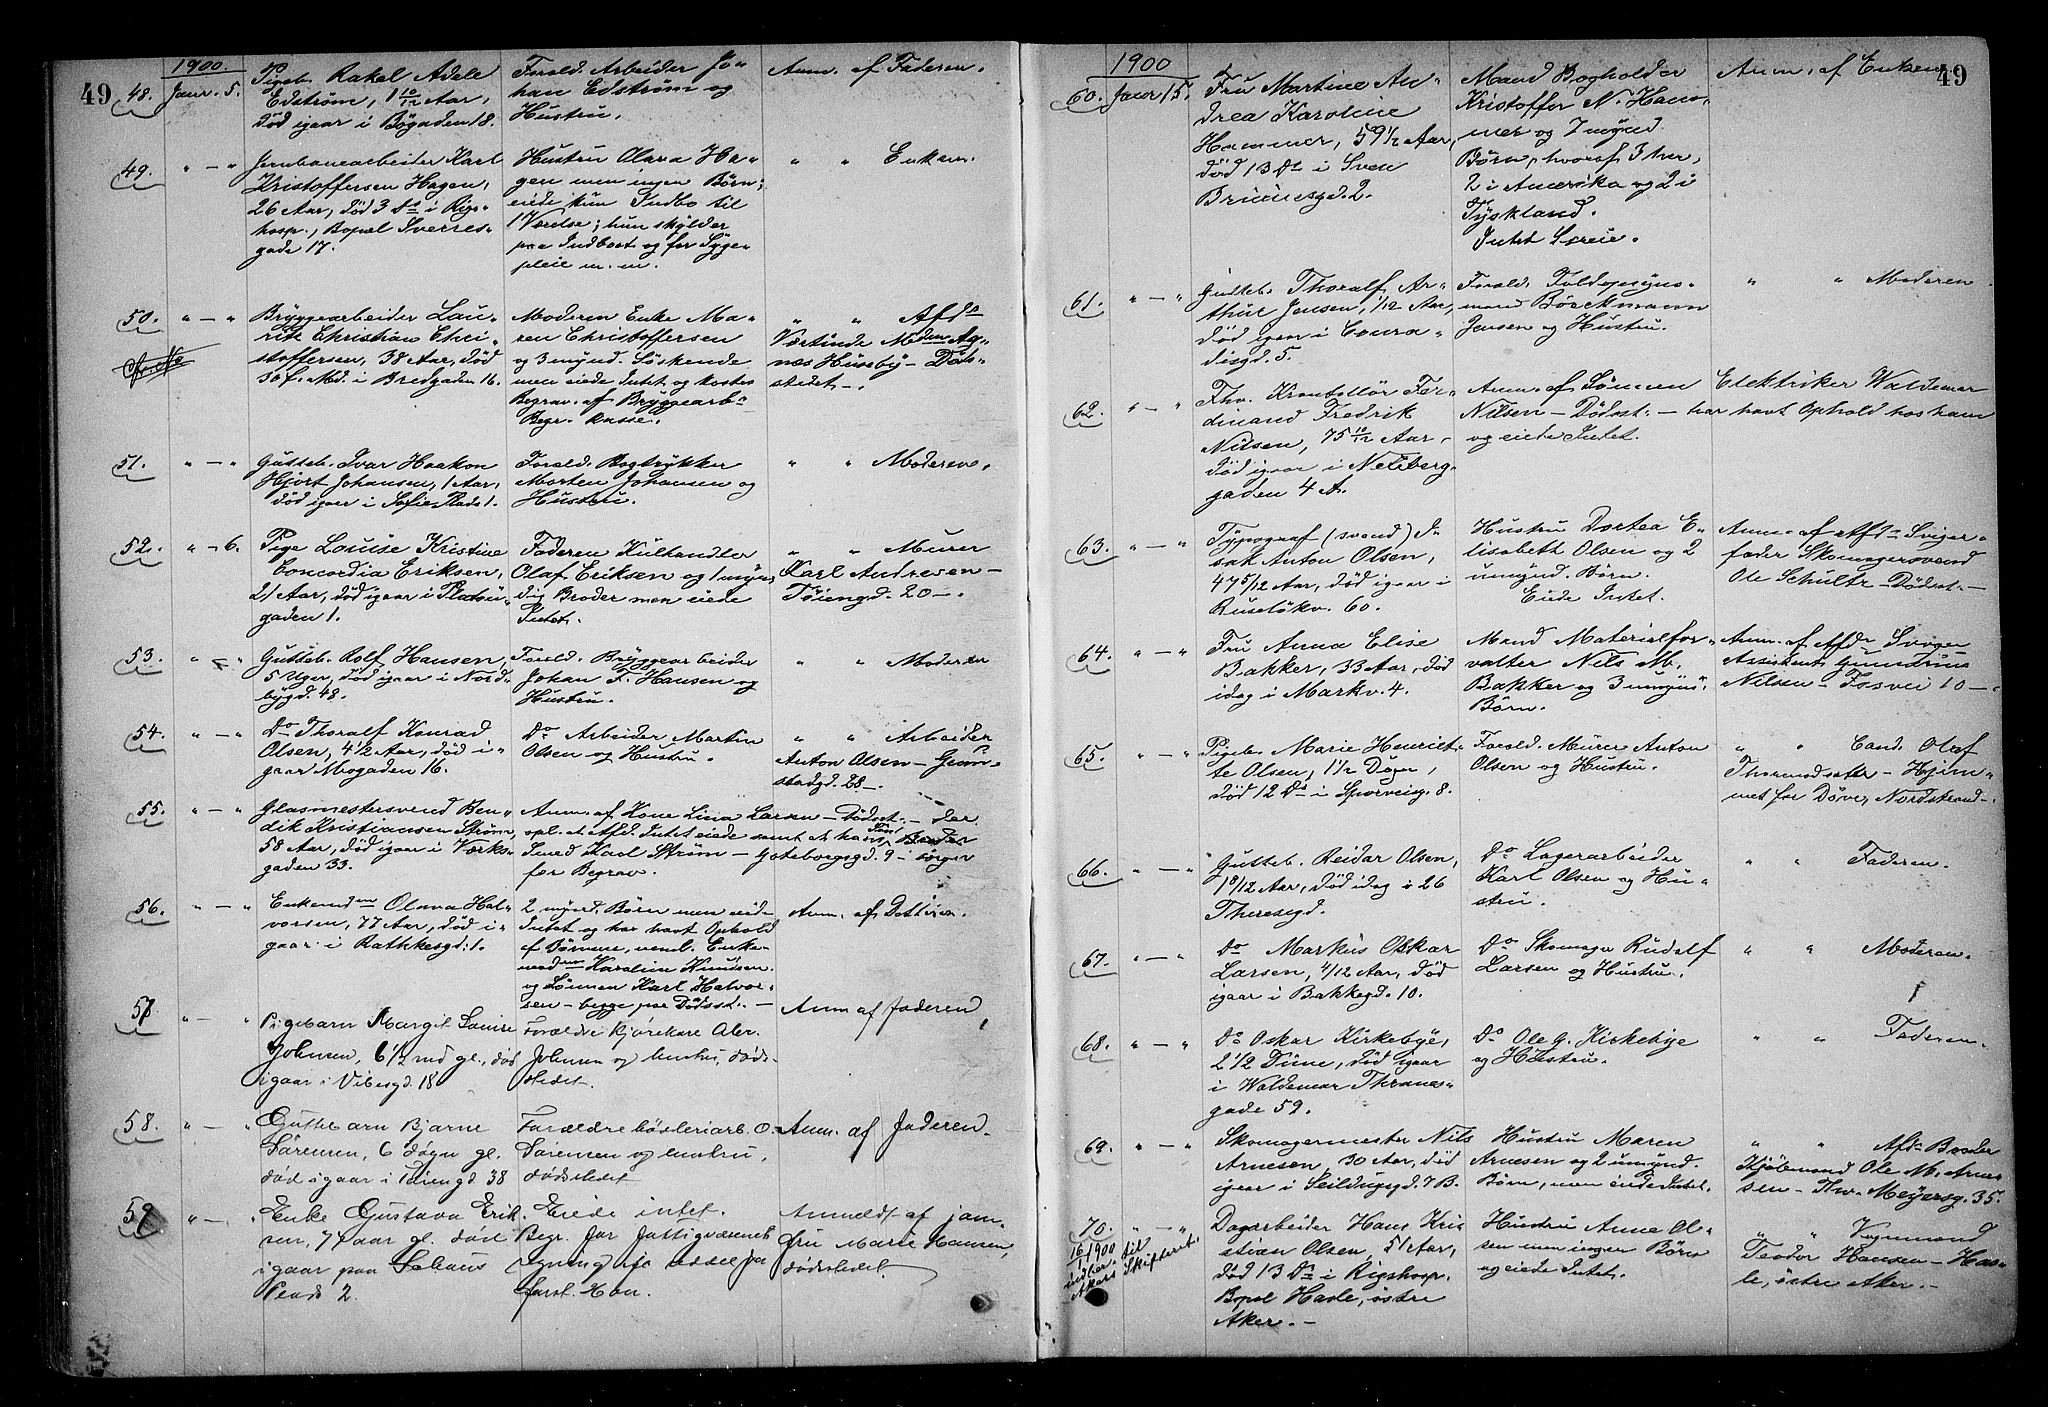 49
1900.
48. Janr. 5. Pigeb. Rakel Adele
Edstrøm, 1 10/12 Aar,
død igaar i Bøgaden 18.
Forald. Arbeider Jo-
han Edstrøm og
Hustru.
Anm. af Faderen.
49. " — " Jernbanearbeider Karl
Kristoffersen Hagen,
26 Aar, død 3 Ds i Rigs-
hosp., Bopæl Sverres-
gade 17.
Hustru Olava Ha-
gen men ingen Børn;
eiede kun Indbo til
1 Værelse; hun skylder
paa Indboet og for Syge-
pleie m. m.
" " Enken.
50. " — " Bryggearbeider Lau-
ritz Christian Chri-
stoffersen, 38 Aar, død
30 f. Md. i Bredgaden 16.
Moderen Enke Ma-
ren Christoffersen
og 3 mynd. Søskende
men eiede Intet og kostes
Begrav. af Bryggearb.
Begr. kasse.
" " Afds
Værtinde Mdm Ag-
nes Husby — Døds-
stedet —.
51. " — " Gutteb. Ivar Haakon
Hjort Johansen, 1 Aar,
død igaar i Sofies Plads 1.
Forald. Bogtrykker
Morten Johansen og
Hustru.
" " Moderen.
52. " — 6. Pige Louise Kristine
Concordia Eriksen,
21 Aar, død igaar i Platou-
gaden 1.
Faderen Kulhandler
Olaf Eriksen og 1 myn-
dig Broder men eiede
Intet.
" " Murer
Karl Andresen —
Tøiengd. 20 —.
53. " — " Gutteb. Rolf Hansen,
5 Uger, død igaar i Nord-
bygd. 48.
Forald. Bryggearbeider
Johan F. Hansen og
Hustru.
" " Moderen
54. " — " Do Thoralf Konrad
Olsen, 4 1/2 Aar, død i-
gaar Mogaden 16.
Do Arbeider Martin
Olsen og Hustru.
" " Arbeider
Anton Olsen — Grøn-
stadgd. 28 —.
55. " — " Glasmestersvend Ben-
dik Kristiansen Strøm,
58 Aar, død igaar i Værks-
gaden 33.
Anm. af Kone Lina Larsen — Dødsst. — der
opl. at Afd. Intet eiede samt at hans Broder
Smed Karl Strøm — Gøteborgsgd. 9 — sørger
for Begrav.
56. " — " Enkemdm Olava Hal-
vorsen, 77 Aar, død i-
gaar i Rathkesgd. 1.
2 mynd. Børn men eiede
Intet og har havt Ophold
af Børnene, nemlig Enke-
mdm Karoline Knudsen
og Sønnen Karl Halvor-
sen — begge paa Dødsst. —
Anm. af Datteren.
57 " — " Pigebarn Margit Louise
Johnsen, 6 1/2 md gl., død
igaar i Vibesgd. 18
Forældre Kjørekarl Aler.
Johnsen og hustru, døds-
stedet.
Anm af Faderen,
58. " — " Guttebarn Bjarne
Sørensen, 6 døgn gl.
død igaar i Tøiengd 38
Forældre bøsleriarb. O.
Sørensen og hustru,
dødsstedet
Anm. af Faderen.
59 " — " Enke Gustava Erik-
sen, 77 aar gl. død
igaar paa Schaus
Plads 2.
Eiede intet.
Begr. for Fattigvæsenets
regning
forst. Hbn.
Anmeldt af jom-
fru Marie Hansen,
dødsstedet.
49
1900
60. Janr 15. Fru Martine An-
drea Karoline
Hammer, 59 1/2 Aar,
død 13 Ds i Sven
Bruunsgd. 2.
Mand Bogholder
Kristoffer N. Ham-
mer og 7 mynd.
Børn, hvoraf 3 her,
2 i Amerika og 2 i
Tyskland.
Intet Særeie.
Anm. af Enken
61. " — " Gutteb. Thoralf Ar-
thur Jensen, 1/12 Aar,
død igaar i Conra-
disgd. 5.
Forald. Toldopsyns-
mand Bøeckmann
Jensen og Hustru.
" " Moderen.
62. " — " Fhv. Kontrollør Fer-
dinand Fredrik
Nilsen, 75 10/12 Aar,
død igaar i Neuberg-
gaden 4 A.
Anm. af Sønnen Elektriker Waldemar
Nilsen — Dødsst. — har havt Ophold hos ham
og eiede Intet.
63. " — " Typograf (svend) I-
sak Anton Olsen,
47 5/12 Aar, død igaar i
Ruseløkv. 60.
Hustru Dortea E-
lisabeth Olsen og 2
umynd. Børn.
Eiede Intet.
Anm. af Afds Sviger-
fader Skomagersvend
Ole Schultz — Dødsst. —
64. " — " Fru Anna Elise
Bakker, 33 Aar, død
idag i Markv. 4.
Mand Materialfor-
valter Nils M.
Bakker og 3 umyn.
Børn.
Anm. af Afds Svoger
Assistent
Nilsen — Fosvei 10 —.
65. " — " Pigeb. Marie Henriet-
te Olsen, 1 1/2 Dage,
død 12 Ds i Sporveisg. 8.
Forald. Murer Anton
Olsen og Hustru.
" " Cand. Olaf
Thormodsæter — Hjem-
met for Døve, Nordstrand —.
66. " — " Gutteb. Reidar Olsen,
1 8/12 Aar, død idag i 26
Theresegd.
Do Lagerarbeider
Karl Olsen og Hu-
stru.
" " Faderen.
67. " — " Do Markus Oskar
Larsen, 4/12 Aar, død
igaar i Bakkegd. 10.
Do Skomager Rudolf
Larsen og Hustru.
" " Moderen.
68. " — " Do Oskar Kirkebye,
2 1/2 Time, død igaar
i Waldemar Thranes-
gade 59.
Do Ole G. Kirkebye
og Hustru.
" " Faderen.
69. " — " Skomagermester Nils
Arnesen, 30 Aar, død
igaar i Seildugsgd. 7 B.
Hustru Maren
Arnesen og 2 umynd.
Børn, men eiede Intet.
" " Afds Broder
Kjøbmand Ole M. Arne-
sen — Thv. Meyersg. 35.
70. " — " Dagarbeider Hans Kri-
stian Olsen, 51 Aar,
død 13 Ds i Rigshosp.
Bopæl Hasle, østre
Aker. —
Hustru Anne Ol-
sen men ingen Børn
og eiede Intet.
" " Vognmand
Teodor Hansen — Has-
le, østre Aker. —
16/1 1900
indber. til
Akers Skifteret.